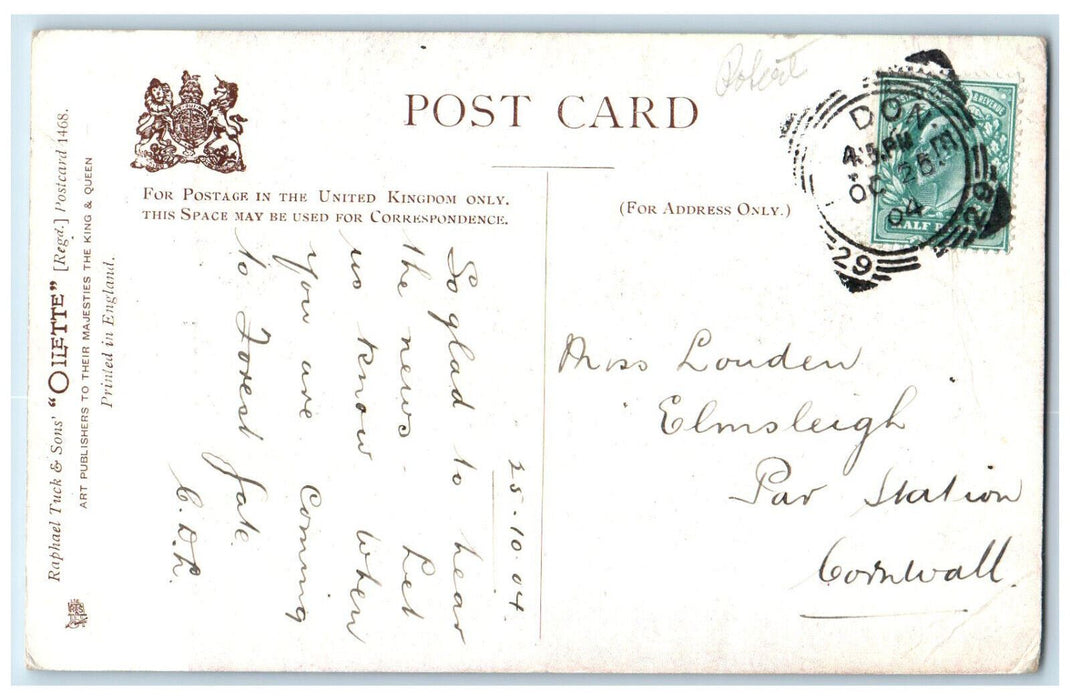 Robert
POST CARD
FOR POSTAGE IN THE UNITED KINGDOM ONLY.
THIS SPACE MAY BE USED FOR CORRESPONDENCE.
(FOR ADDRESS ONLY.)
Raphael Tuck & Sons' "OILETTE" [Regd.] Postcard 1468.
ART PUBLISHERS TO THEIR MAJESTIES THE KING & QUEEN
Printed in England.
25-10-04.
So glad to hear
the news. Let
us know when
you are coming
to Forest Gate.
C.D.L.
Miss Louden
Elmsleigh
Par Station
Cornwall.
DON
OC 25
04
29
29
& REVENUE
HALF